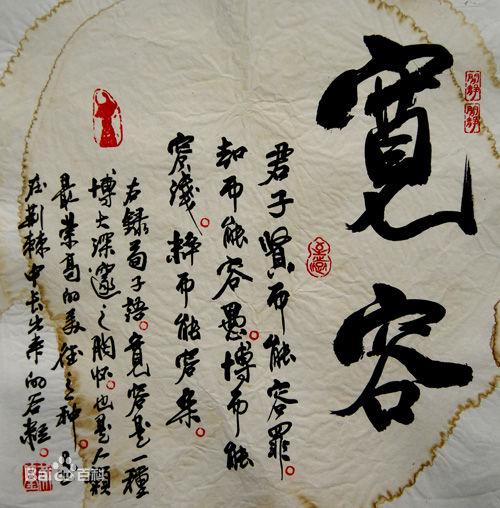 寬容
君子賢而能容罷
知而能容愚。博而能
容淺。粹而能容杂。
右録荀子語。寬容是一種
博大深邃之胸怀。也是人類
最崇高的美德之一种。是
在荆棘中长出来的谷粒。
Bai百科